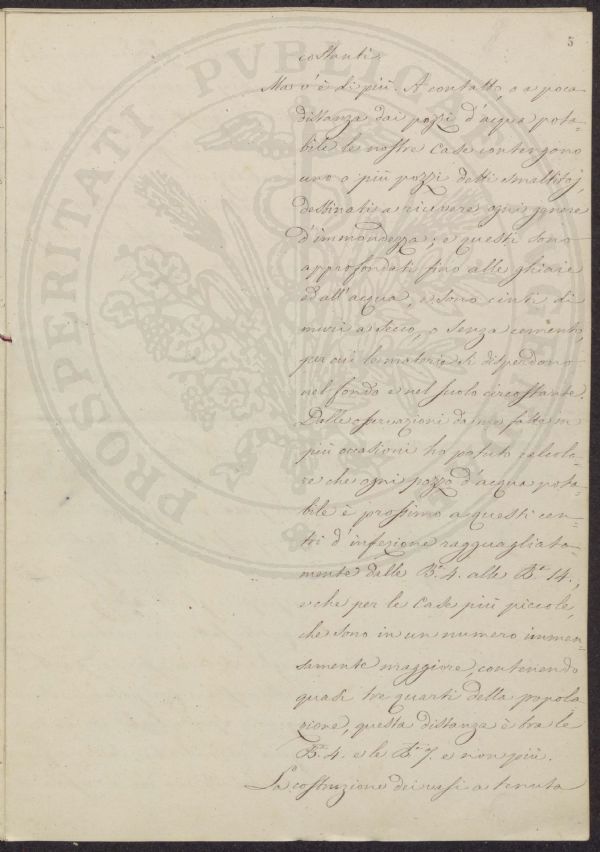 5
costanti.
Ma v'è di più. A contatto, o a poca
distanza dai pozzi d'acqua pota-
bile le nostre case contengono
uno o più pozzi detti smaltitoj,
destinati a ricevere ogni genere
d'immondezza; e questi sono
approfondati fino alle ghiaie
ed all'acqua, e sono cinti di
muri a secco, o senza cemento,
per cui le materie si disperdono
nel fondo e nel suolo circostante.
Dalle osservazioni da me fatte in
più occasioni ho potuto calcola-
re che ogni pozzo d'acqua pota-
bile è prossimo a questi cen-
tri d'infezione ragguagliata-
mente dalle B.ª 4. alle B.ª 14.,
e che per le case più piccole,
che sono in un numero immen-
samente maggiore, contenendo
quasi tre quarti della popola
zione, questa distanza è tra le
B.ª 4. e le B.ª 7. e non più.
La costruzione dei vasi a tenuta
PROSPERITATI PUBLICAE